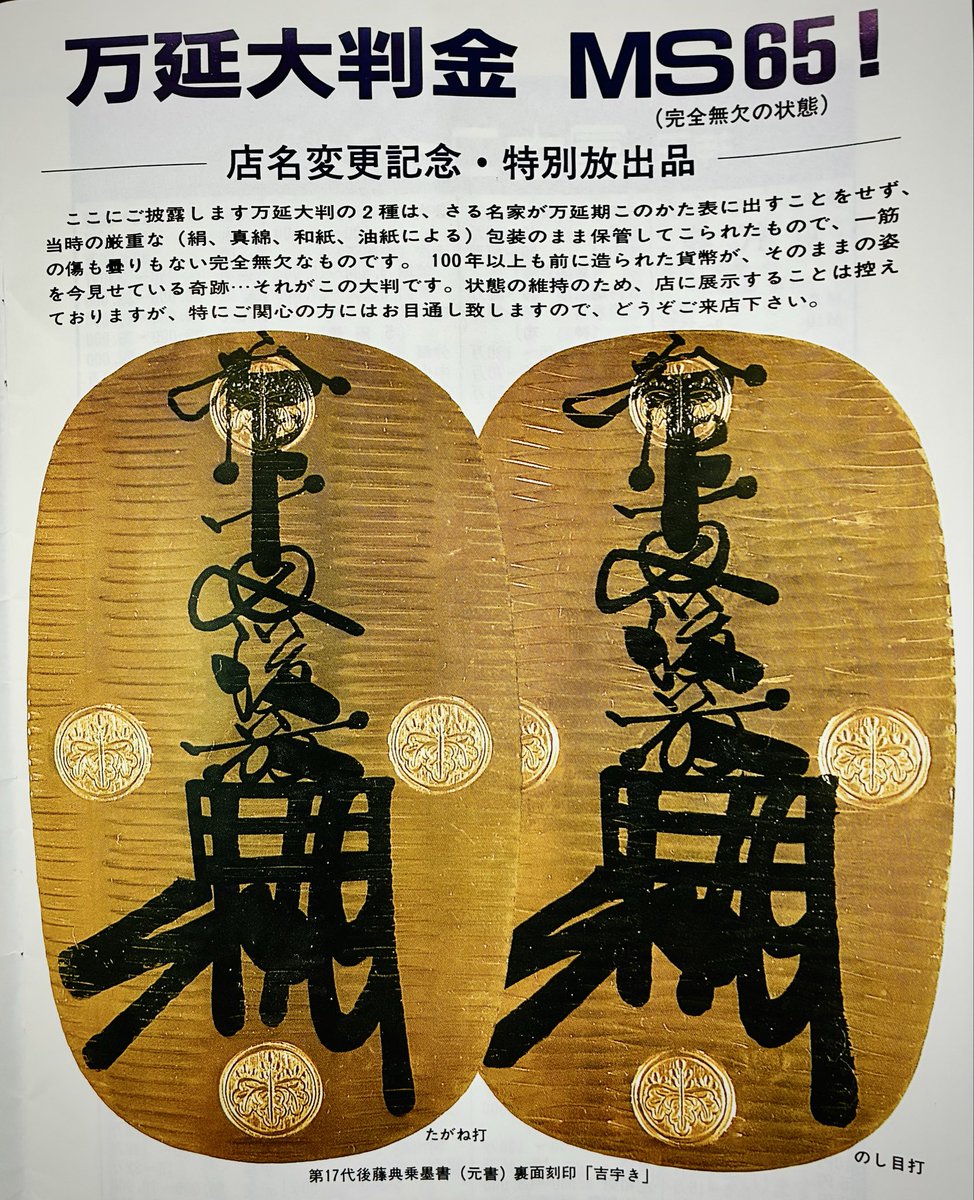 万延大判金 MS65!
(完全無欠の状態)
店名変更記念・特別放出品
ここにご披露します万延大判の2種は、さる名家が万延期このかた表に出すことをせず、
当時の厳重な(絹、真綿、和紙、油紙による)包装のまま保管してこられたもので、一筋
の傷も曇りもない完全無欠なものです。100年以上も前に造られた貨幣が、そのままの姿
を今見せている奇跡…それがこの大判です。状態の維持のため、店に展示することは控え
ておりますが、特にご関心の方にはお目通し致しますので、どうぞご来店下さい。
たがね打
のし目打
第17代後藤典乗墨書(元書)裏面刻印「吉宇き」